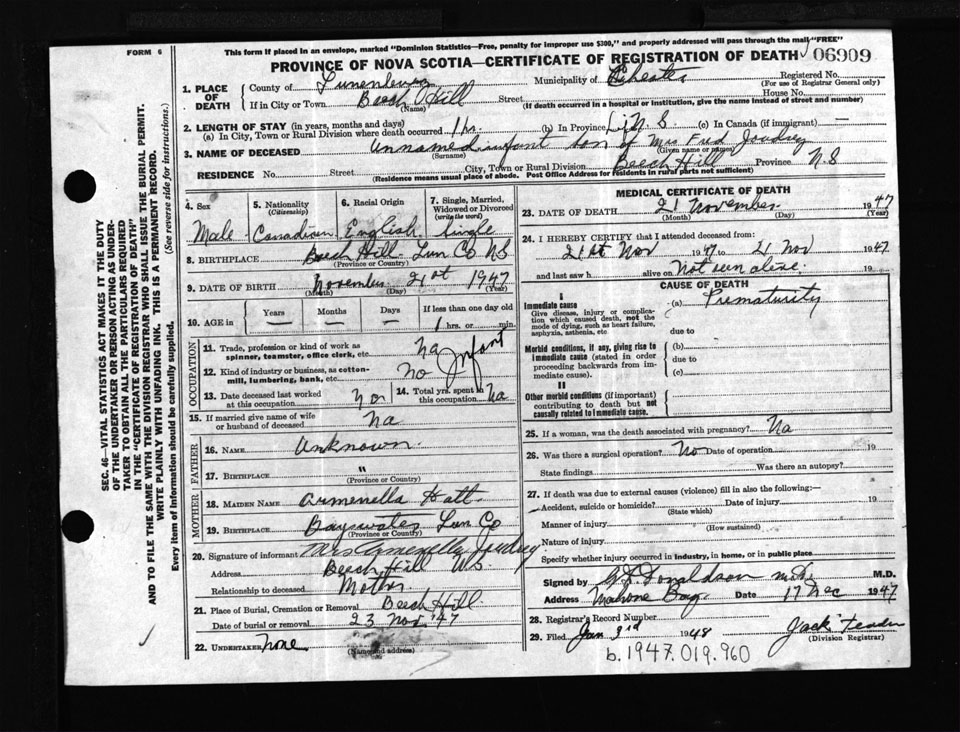 FORM 6
This form if placed in an envelope, marked "Dominion Statistics—Free, penalty for improper use $300," and properly addressed will pass through the mail "FREE"
PROVINCE OF NOVA SCOTIA—CERTIFICATE OF REGISTRATION OF DEATH 06909
1. PLACE OF DEATH
County of Lunenburg Municipality of Chester Registered No.
(For use of Registrar General only)
If in City or Town Beech Hill Street House No.
(Name) (If death occurred in a hospital or institution, give the name instead of street and number)
2. LENGTH OF STAY (in years, months and days)
(a) In City, Town or Rural Division where death occurred 1 hr. (b) In Province N.S. (c) In Canada (if immigrant) —
3. NAME OF DECEASED Unnamed infant son of Mrs Fred Joudrey
(Surname) (Given name or names)
RESIDENCE No. Street City, Town or Rural Division Beech Hill Province N.S
(Residence means usual place of abode. Post Office Address for residents in rural parts not sufficient)
4. Sex Male
5. Nationality (Citizenship) Canadian
6. Racial Origin English
7. Single, Married, Widowed or Divorced (write the word) Single
8. BIRTHPLACE Beech Hill Lun Co NS
(Province or Country)
9. DATE OF BIRTH November 21st 1947
(Month) (Day) (Year)
10. AGE in Years — Months — Days — If less than one day old 1 hrs. or min.
OCCUPATION
11. Trade, profession or kind of work as spinner, teamster, office clerk, etc. na
12. Kind of industry or business, as cotton-mill, lumbering, bank, etc. no Infant
13. Date deceased last worked at this occupation
14. Total yrs. spent in this occupation na
15. If married give name of wife or husband of deceased Na
FATHER
16. NAME Unknown
17. BIRTHPLACE "
(Province or Country)
MOTHER
18. MAIDEN NAME Armenella Hatt
19. BIRTHPLACE Bayswater Lun Co
(Province or Country)
20. Signature of informant Mrs Armenella Joudrey
Address Beech Hill N.S.
Relationship to deceased Mother
21. Place of Burial, Cremation or Removal Beech Hill
Date of burial or removal 23 Nov '47
22. UNDERTAKER None
(Name and address)
MEDICAL CERTIFICATE OF DEATH
23. DATE OF DEATH 21 November 1947
(Month) (Day) (Year)
24. I HEREBY CERTIFY that I attended deceased from:
21st Nov 1947 to 21 Nov 1947
and last saw h alive on Not seen alive. 19
CAUSE OF DEATH
I
Immediate cause (a) Prematurity
Give disease, injury or complication which caused death, not the mode of dying, such as heart failure, asphyxia, asthenia, etc
due to
Morbid conditions, if any, giving rise to immediate cause (stated in order proceeding backwards from immediate cause).
(b)
due to
(c)
II
Other morbid conditions (if important) contributing to death but not causally related to immediate cause.
25. If a woman, was the death associated with pregnancy? Na
26. Was there a surgical operation? No Date of operation 19
State findings Was there an autopsy?
27. If death was due to external causes (violence) fill in also the following:
Accident, suicide or homicide? Date of injury 19
(State which)
Manner of injury (How sustained)
Nature of injury
Specify whether injury occurred in industry, in home, or in public place
Signed by Donaldson M.D.
Address Mahone Bay Date 17 Dec 1947
28. Registrar's Record Number
29. Filed Jan 3rd 1948
(Division Registrar)
b.1947.019.960
SEC. 46—VITAL STATISTICS ACT MAKES IT THE DUTY
OF THE UNDERTAKER OR PERSON ACTING AS UNDER-
TAKER TO OBTAIN ALL THE PARTICULARS REQUIRED
IN THE "CERTIFICATE OF REGISTRATION OF DEATH"
AND TO FILE THE SAME WITH THE DIVISION REGISTRAR WHO SHALL ISSUE THE BURIAL PERMIT.
WRITE PLAINLY WITH UNFADING INK. THIS IS A PERMANENT RECORD.
Every item of Information should be carefully supplied. (See reverse side for instructions.)